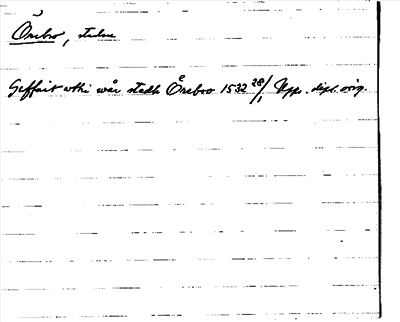 Örebro, staden
Geffuit vthi wår stadh Örebro 1532 28/1 Upps. dipl. orig.